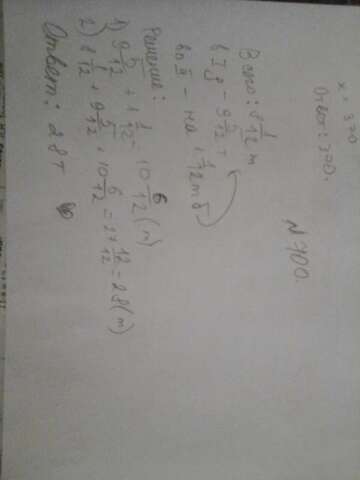 x = 370
Ответ: 370.
N 700.
Взято: 8 1/12 т
в I д - 9 5/12 т
во II - на 1 1/12 т б
Решение:
1) 9 5/12 + 1 1/12 = 10 6/12 (т)
2) 8 1/12 + 9 5/12 + 10 6/12 = 27 12/12 = 28 (т)
Ответ: 28 т